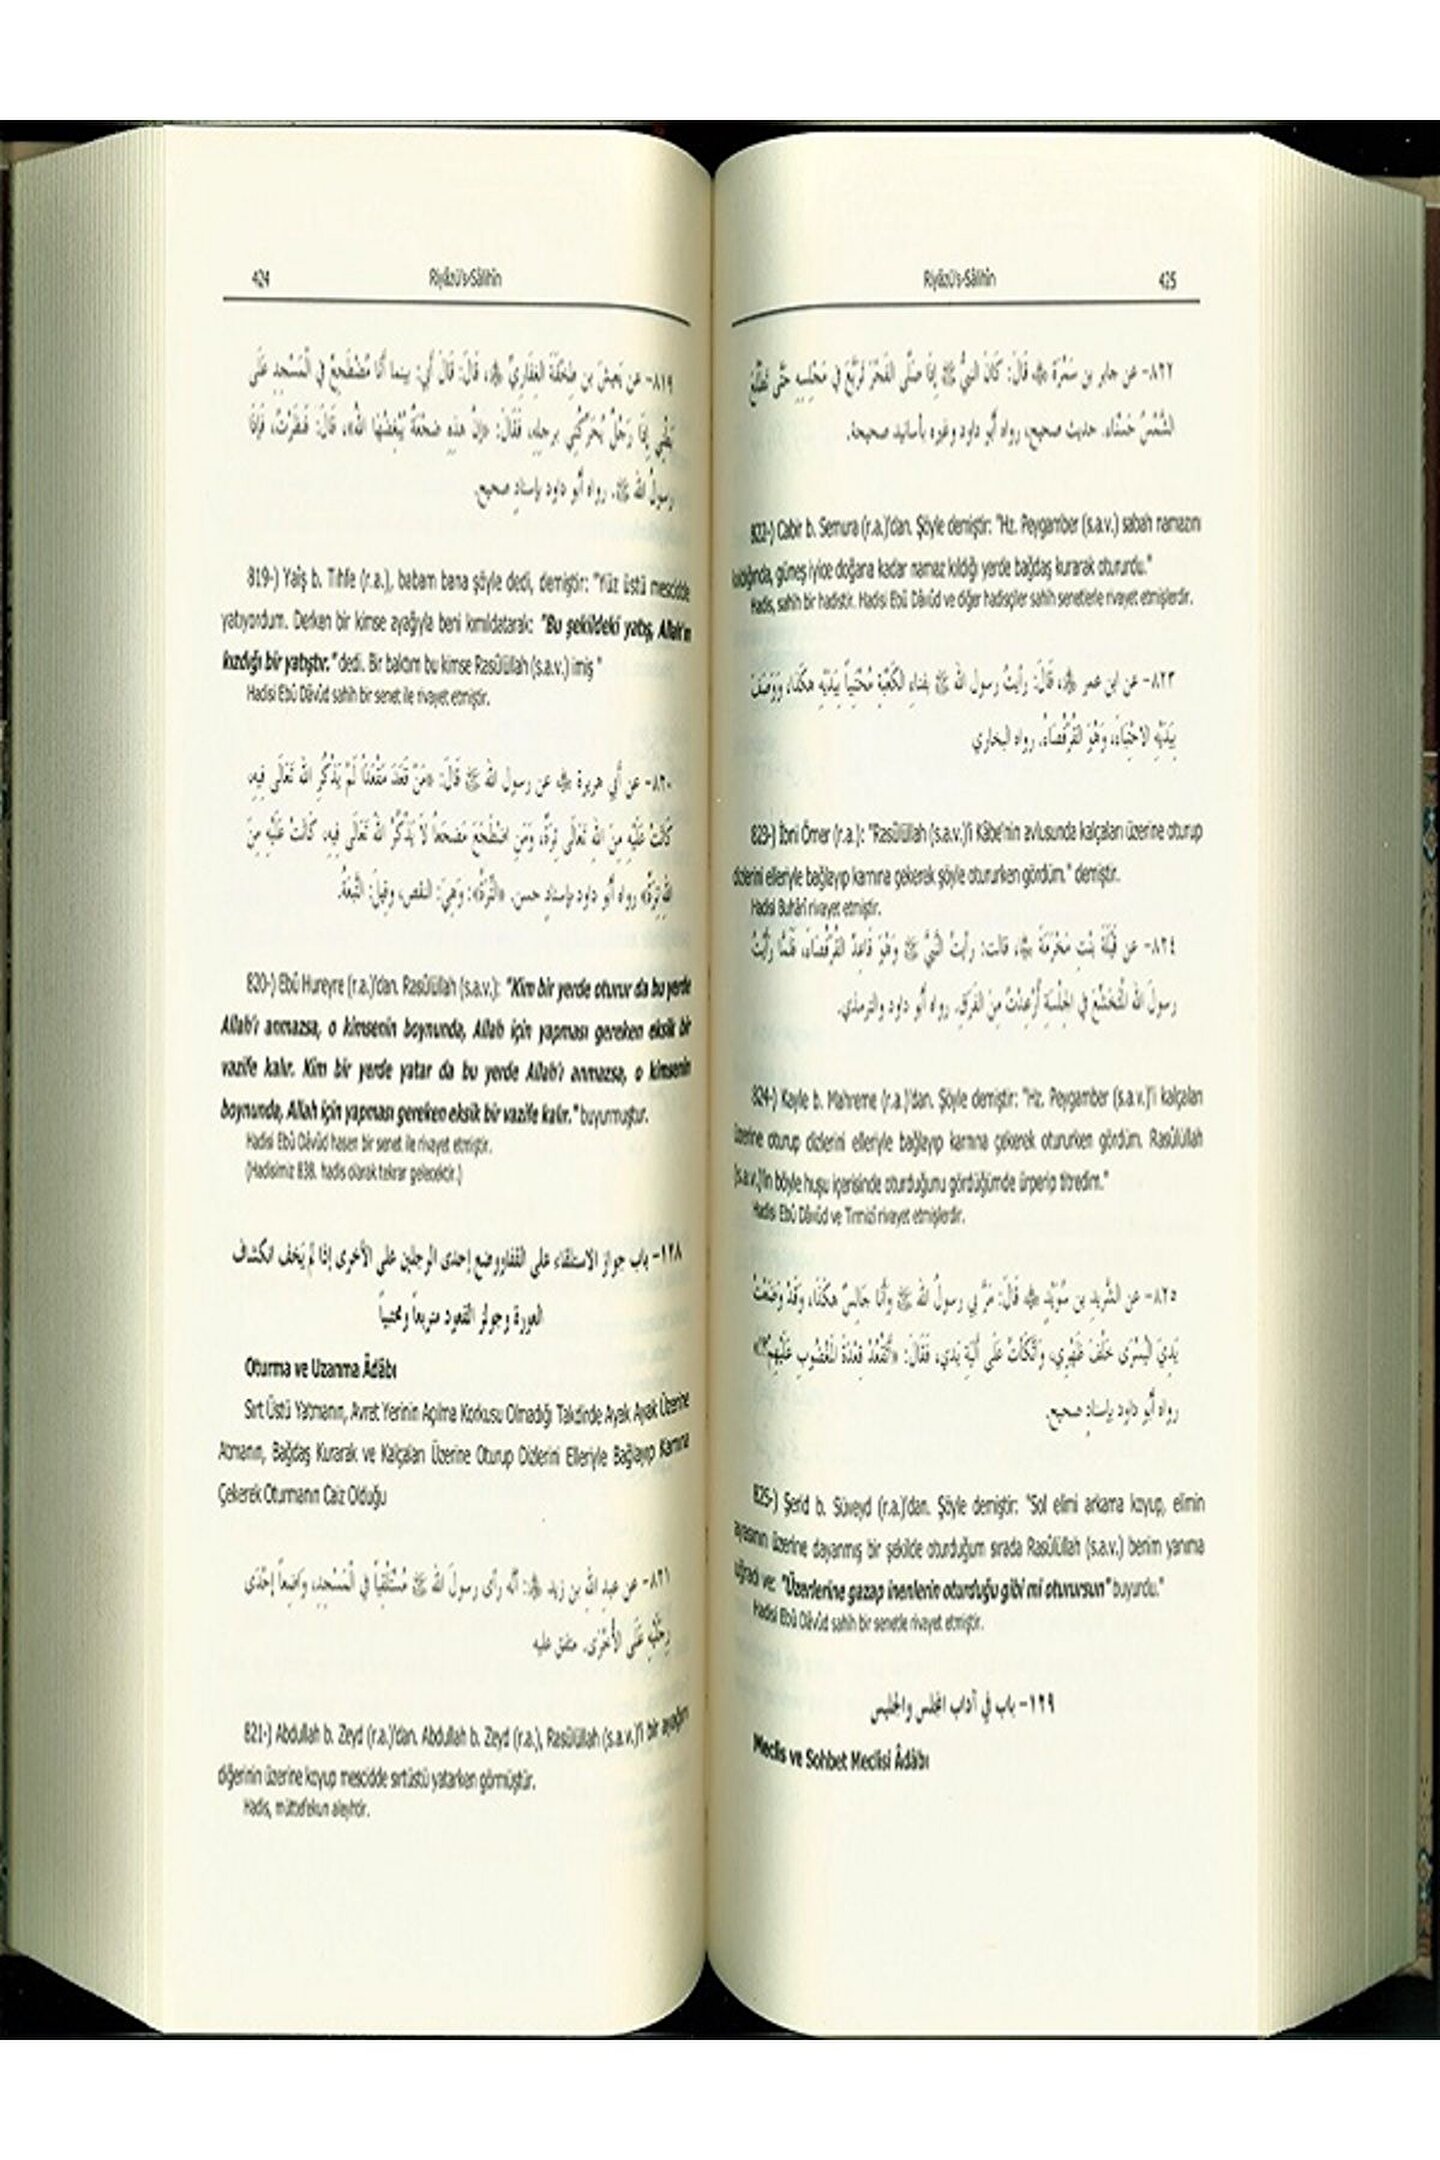 424 Riyâzü's-Sâlihîn
٨١٩- عن يَعِيشَ بن طِخْفَةَ الغِفَارِيِّ ﷺ، قَالَ: قَالَ أَبي: بينما أَنَا مُضْطَجِعٌ في الْمَسْجِدِ عَلَى
بَطْنِي إِذَا رَجُلٌ يُحَرِّكُنِي برجلِهِ، فَقَالَ: «إنَّ هذِهِ ضجْعَةٌ يُبْغِضُهَا اللهُ»، قَالَ: فَنظَرْتُ، فَإذَا
رسولُ الله ﷺ. رواه أَبُو داود بإسنادٍ صحيح.
819-) Yaîş b. Tıhfe (r.a.), babam bana şöyle dedi, demiştir: "Yüz üstü mescidde
yatıyordum. Derken bir kimse ayağıyla beni kımıldatarak: "Bu şekildeki yatış, Allah'ın
kızdığı bir yatıştır." dedi. Bir baktım bu kimse Rasûlüllah (s.a.v.) imiş "
Hadisi Ebû Dâvûd sahih bir senet ile rivayet etmiştir.
٨٢٠- عن أَبي هريرة ﷺ عن رسول الله ﷺ قَالَ: «مَنْ قَعَدَ مَقْعَداً لَمْ يَذْكُرِ الله تَعَالَى فِيهِ،
كَانَتْ عَلَيْهِ مِنَ اللهِ تَعَالَى تِرَةٌ، وَمَنِ اضْطَجَعَ مَضجَعاً لاَ يَذْكُرُ اللهَ تَعَالَى فِيهِ، كَانَتْ عَلَيْهِ مِنَ
اللهِ تِرَةٌ» رواه أَبُو داود بإسنادٍ حسن. «التِّرَةُ»: وَهِيَ: النقص، وقِيلَ: التَّبعَةُ.
820-) Ebû Hureyre (r.a.)'dan. Rasûlüllah (s.a.v.): "Kim bir yerde oturur da bu yerde
Allah'ı anmazsa, o kimsenin boynunda, Allah için yapması gereken eksik bir
vazife kalır. Kim bir yerde yatar da bu yerde Allah'ı anmazsa, o kimsenin
boynunda, Allah için yapması gereken eksik bir vazife kalır." buyurmuştur.
Hadisi Ebû Dâvûd hasen bir senet ile rivayet etmiştir.
(Hadisimiz 838. hadis olarak tekrar gelecektir.)
١٢٨- باب جواز الاستلقاء على القفا ووضع إحدى الرجلين على الأخرى إذا لم يَخف انكشاف
العورة وجواز القعود متربعاً ومحتبياً
Oturma ve Uzanma Âdâbı
Sırt Üstü Yatmanın, Avret Yerinin Açılma Korkusu Olmadığı Takdirde Ayak Ayak Üzerine
Atmanın, Bağdaş Kurarak ve Kalçaları Üzerine Oturup Dizlerini Elleriyle Bağlayıp Karnına
Çekerek Oturmanın Caiz Olduğu
٨٢١- عن عبدِ اللهِ بن زيد ﷺ: أنَّه رأى رسولَ الله ﷺ مُسْتَلْقِياً في الْمَسْجِدِ، وَاضِعاً إحْدَى
رِجْلَيْهِ عَلَى الأُخْرَى. متفق عليه
821-) Abdullah b. Zeyd (r.a.)'dan. Abdullah b. Zeyd (r.a.), Rasûlüllah (s.a.v.)'i bir ayağını
diğerinin üzerine koyup mescidde sırtüstü yatarken görmüştür.
Hadis, müttefekun aleyhtir.
Riyâzü's-Sâlihîn 425
٨٢٢- عن جابر بن سَمُرَة ﷺ، قَالَ: كَانَ النبيُّ ﷺ إِذَا صَلَّى الفَجْرَ تَرَبَّعَ في مَجْلِسِهِ حَتَّى تَطْلُعَ
الشَّمْسُ حَسْنَاء. حديث صحيح، رواه أَبُو داود وغيره بأسانيد صحيحة.
822-) Cabir b. Semura (r.a.)'dan. Şöyle demiştir: "Hz. Peygamber (s.a.v.) sabah namazını
kıldığında, güneş iyice doğana kadar namaz kıldığı yerde bağdaş kurarak otururdu."
Hadis, sahih bir hadistir. Hadisi Ebû Dâvûd ve diğer hadisçiler sahih senetlerle rivayet etmişlerdir.
٨٢٣- عن ابن عمر ﷺ، قَالَ: رأيتُ رسول الله ﷺ بفناءِ الكَعْبَةِ مُحْتَبِياً بِيَدَيْهِ هكَذَا، وَوَصَفَ
بِيَدَيْهِ الاحْتِبَاءَ، وَهُوَ القُرْفُصَاءُ. رواه البخاري
823-) İbni Ömer (r.a.): "Rasûlüllah (s.a.v.)'i Kâbe'nin avlusunda kalçaları üzerine oturup
dizlerini elleriyle bağlayıp karnına çekerek şöyle otururken gördüm." demiştir.
Hadisi Buhârî rivayet etmiştir.
٨٢٤- عن قَيْلَةَ بنْتِ مَخْرَمَةَ ﷺ، قالت: رأيتُ النَّبيَّ ﷺ وَهُوَ قَاعِدٌ القُرْفُصَاءَ، فَلَمَّا رَأَيْتُ
رسولَ الله المُتَخَشِّعَ في الجِلْسَةِ أُرْعِدْتُ مِنَ الفَرَقِ. رواه أَبُو داود والترمذي.
824-) Kayle b. Mahreme (r.a.)'dan. Şöyle demiştir: "Hz. Peygamber (s.a.v.)'i kalçaları
üzerine oturup dizlerini elleriyle bağlayıp karnına çekerek otururken gördüm. Rasûlüllah
(s.a.v.)'in böyle huşu içerisinde oturduğunu gördüğümde ürperip titredim."
Hadisi Ebû Dâvûd ve Tirmizî rivayet etmişlerdir.
٨٢٥- عن الشَّريدِ بن سُوَيْدٍ ﷺ قَالَ: مَرَّ بي رسولُ الله ﷺ وَأنَا جَالِسٌ هكَذَا، وَقَدْ وَضَعْتُ
يَدِيَ اليُسْرَى خَلْفَ ظَهْرِي، وَاتَّكَأْتُ عَلَى أَلْيَةِ يَدي، فَقَالَ: «أَتَقْعُدُ قِعْدَةَ المَغْضُوبِ عَلَيْهِمْ؟!»
رواه أَبُو داود بإسنادٍ صحيح.
825-) Şerîd b. Süveyd (r.a.)'dan. Şöyle demiştir: "Sol elimi arkama koyup, elimin
ayasının üzerine dayanmış bir şekilde oturduğum sırada Rasûlüllah (s.a.v.) benim yanıma
uğradı ve: "Üzerlerine gazap inenlerin oturduğu gibi mi oturursun" buyurdu."
Hadisi Ebû Dâvûd sahih bir senetle rivayet etmiştir.
١٢٩- باب في آداب المجلس والجليس
Meclis ve Sohbet Meclisi Âdâbı